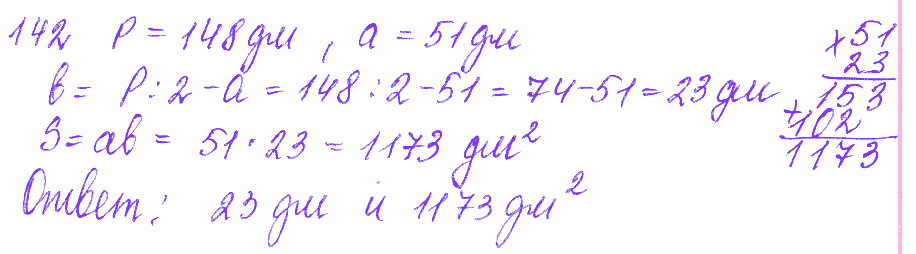 142 P = 148 дм , a = 51 дм
b = P : 2 - a = 148 : 2 - 51 = 74 - 51 = 23 дм
S = ab = 51 · 23 = 1173 дм²
Ответ: 23 дм и 1173 дм²
× 51
23
153
+ 102
1173